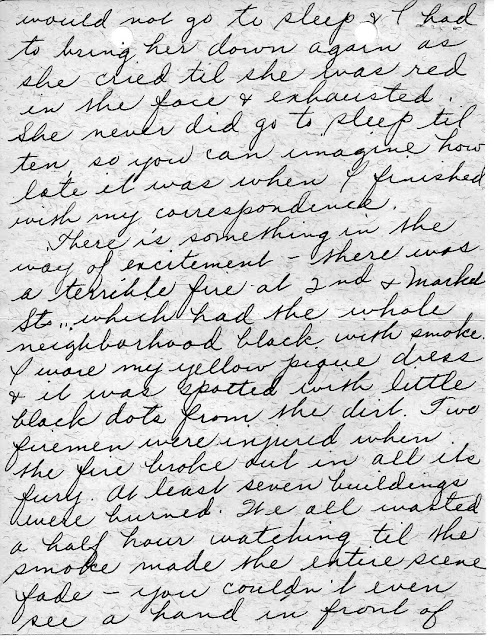 would not go to sleep & I had
to bring her down again as
she cried til she was red
in the face & exhausted.
She never did go to sleep til
ten, so you can imagine how
late it was when I finished
with my correspondence.
There is something in the
way of excitement - there was
a terrible fire at 2nd & Market
Sts., which had the whole
neighborhood black with smoke.
I wore my yellow pique dress
& it was spotted with little
black dots from the dirt. Two
firemen were injured when
the fire broke out in all its
fury. At least seven buildings
were burned. We all wasted
a half hour watching til the
smoke made the entire scene
fade - you couldn't even
see a hand in front of